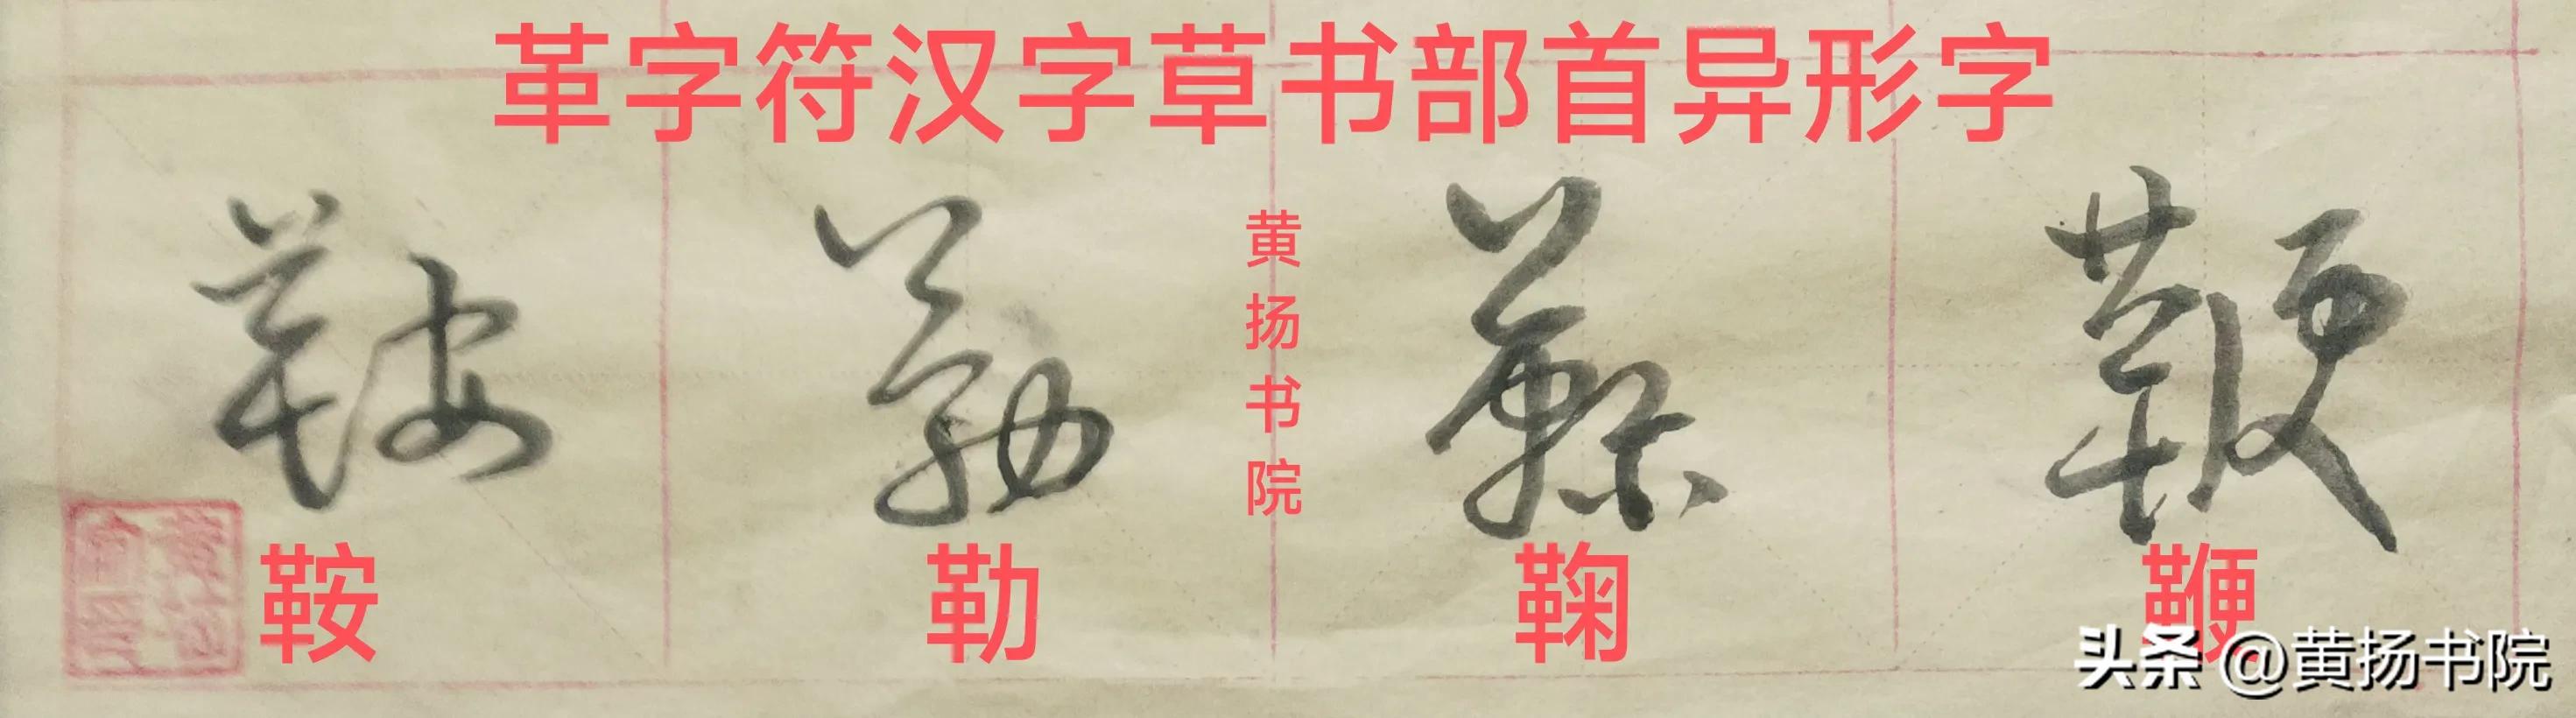 革字符汉字草书部首异形字
鞍 勒 鞠 鞭
黄扬书院
鞍 勒 鞠 鞭
头条 @黄扬书院